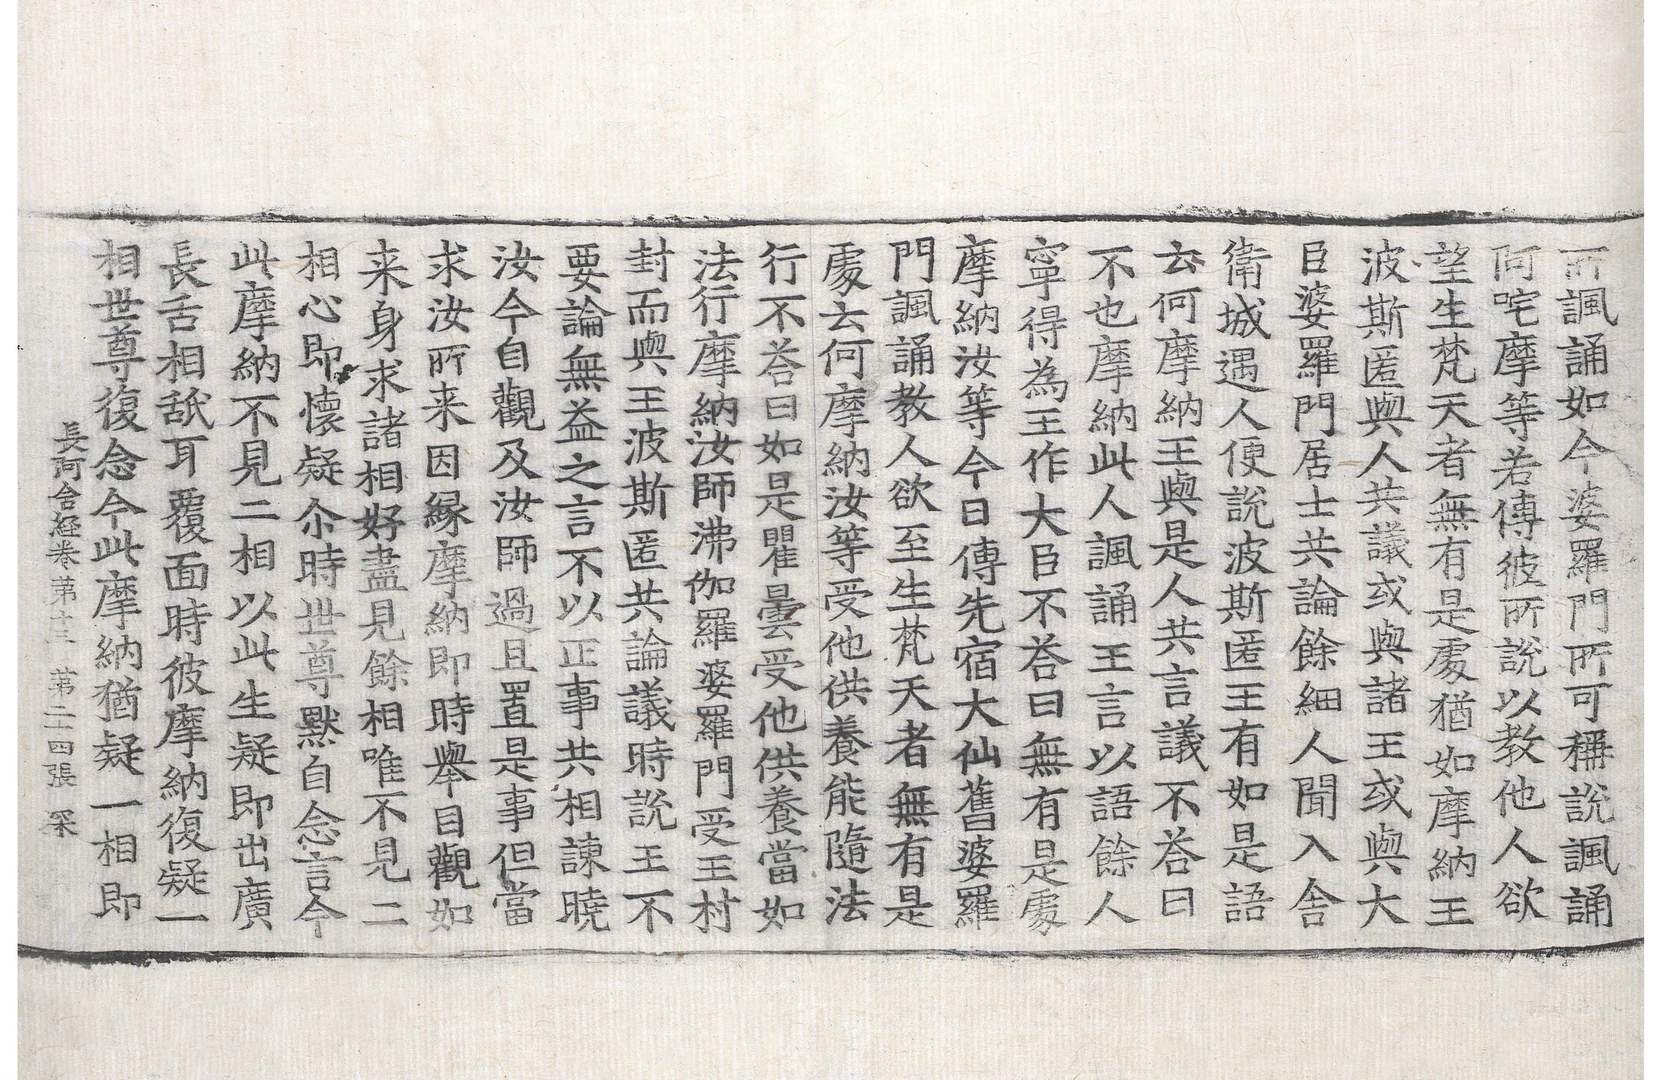 所諷誦如今婆羅門所可稱說諷誦
阿咤摩等若傳彼所說以教他人欲
望生梵天者無有是處猶如摩納王
波斯匿與人共議或與諸王或與大
臣婆羅門居士共論餘細人聞入舍
衛城遇人便說波斯匿王有如是語
云何摩納王與是人共言議不荅曰
不也摩納此人諷誦王言以語餘人
寧得為王作大臣不荅曰無有是處
摩納汝等今日傳先宿大仙舊婆羅
門諷誦教人欲至生梵天者無有是
處云何摩納汝等受他供養能隨法
行不荅曰如是瞿曇受他供養當如
法行摩納汝師沸伽羅婆羅門受王村
封而與王波斯匿共論議時說王不
要論無益之言不以正事共相諫曉
汝今自觀及汝師過且置是事但當
求汝所来因緣摩納即時舉目觀如
来身求諸相好盡見餘相唯不見二
相心即懷疑尒時世尊默自念言今
此摩納不見二相以此生疑即出廣
長舌相舐耳覆面時彼摩納復疑一
相世尊復念今此摩納猶疑一相即
長阿含經卷第十三 第二十四張 罙